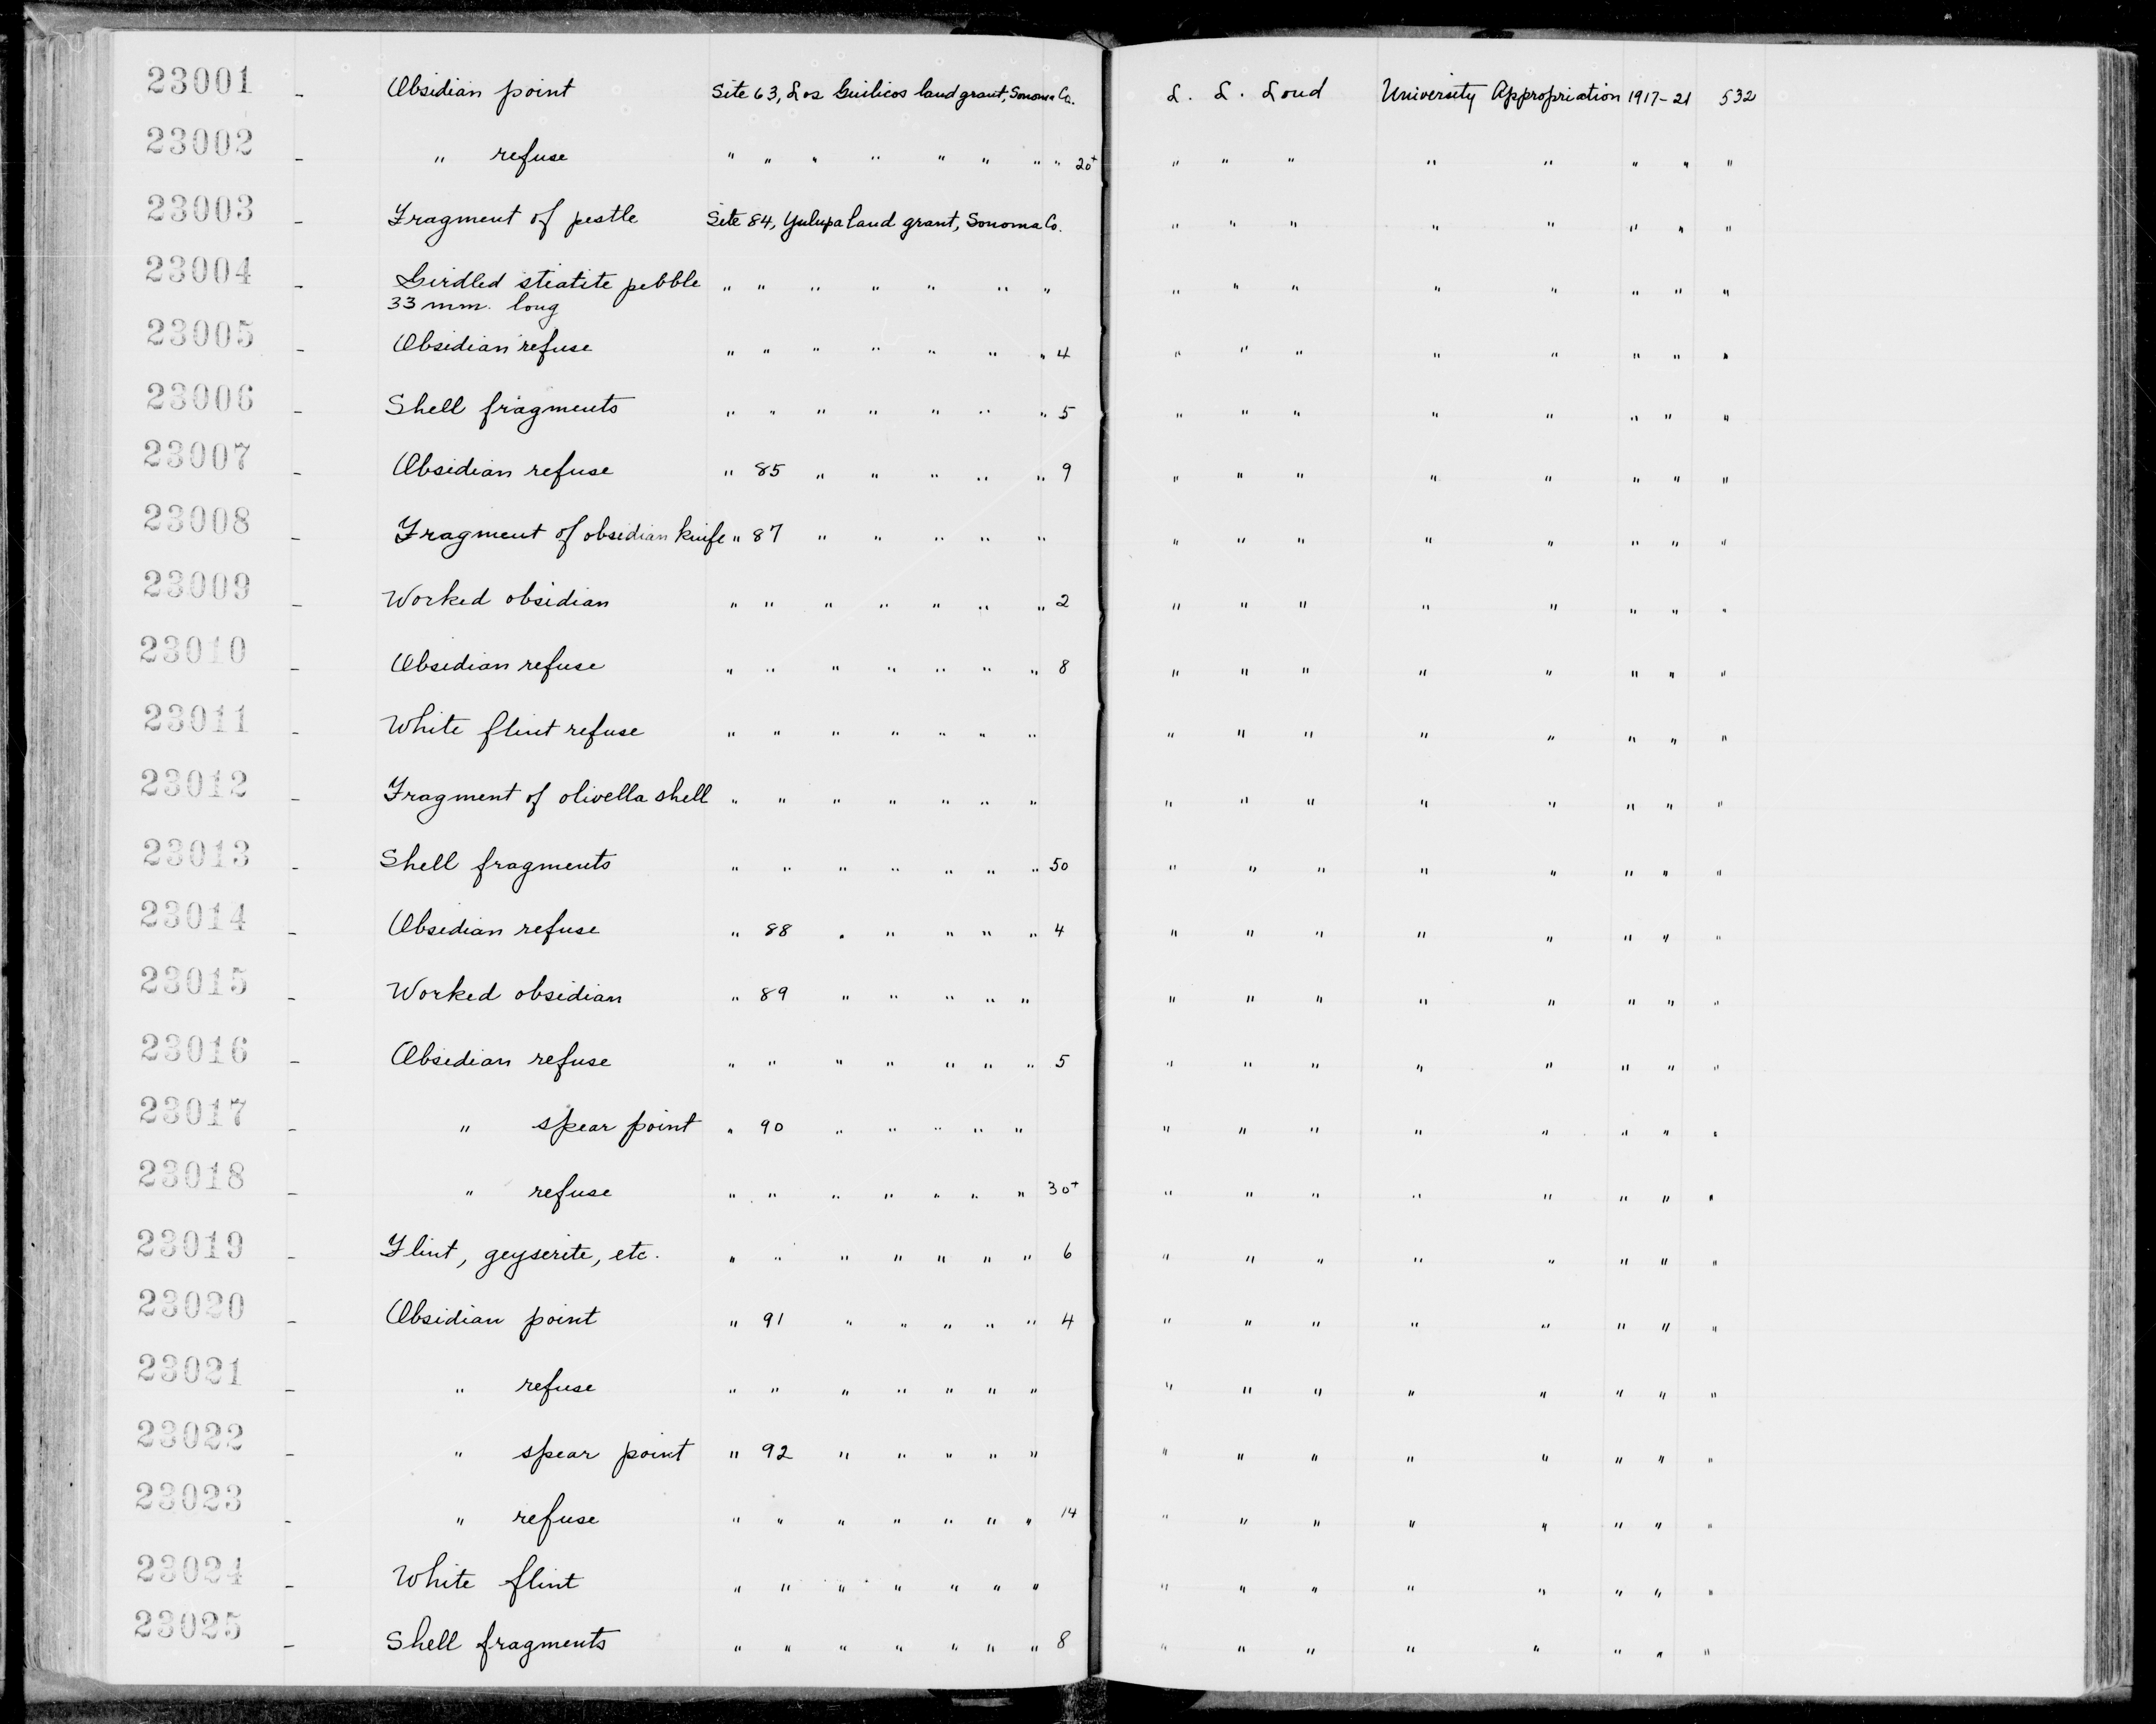 23001 - Obsidian point Site 63, Los Guilicos land grant, Sonoma Co. L. L. Loud University Appropriation 1917-21 532
23002 - " refuse " " " " " " " " 20+ " " " " " " " "
23003 - Fragment of pestle Site 84, Yulupa land grant, Sonoma Co. " " " " " " " "
23004 - Girdled steatite pebble " " " " " " " " " " " " " " "
33 mm. long
23005 - Obsidian refuse " " " " " " " 4 " " " " " " " "
23006 - Shell fragments " " " " " " " 5 " " " " " " " "
23007 - Obsidian refuse " 85 " " " " " 9 " " " " " " " "
23008 - Fragment of obsidian knife " 87 " " " " " " " " " " " " "
23009 - Worked obsidian " " " " " " " 2 " " " " " " " "
23010 - Obsidian refuse " " " " " " " 8 " " " " " " " "
23011 - White flint refuse " " " " " " " " " " " " " " "
23012 - Fragment of olivella shell " " " " " " " " " " " " " " "
23013 - Shell fragments " " " " " " " 50 " " " " " " " "
23014 - Obsidian refuse " 88 " " " " " 4 " " " " " " " "
23015 - Worked obsidian " 89 " " " " " " " " " " " " "
23016 - Obsidian refuse " " " " " " " 5 " " " " " " " "
23017 - " spear point " 90 " " " " " " " " " " " " "
23018 - " refuse " " " " " " " 30+ " " " " " " " "
23019 - Flint, geyserite, etc. " " " " " " " 6 " " " " " " " "
23020 - Obsidian point " 91 " " " " " 4 " " " " " " " "
23021 - " refuse " " " " " " " " " " " " " " "
23022 - " spear point " 92 " " " " " " " " " " " " "
23023 - " refuse " " " " " " " 14 " " " " " " " "
23024 - White flint " " " " " " " " " " " " " " "
23025 - Shell fragments " " " " " " " 8 " " " " " " " "